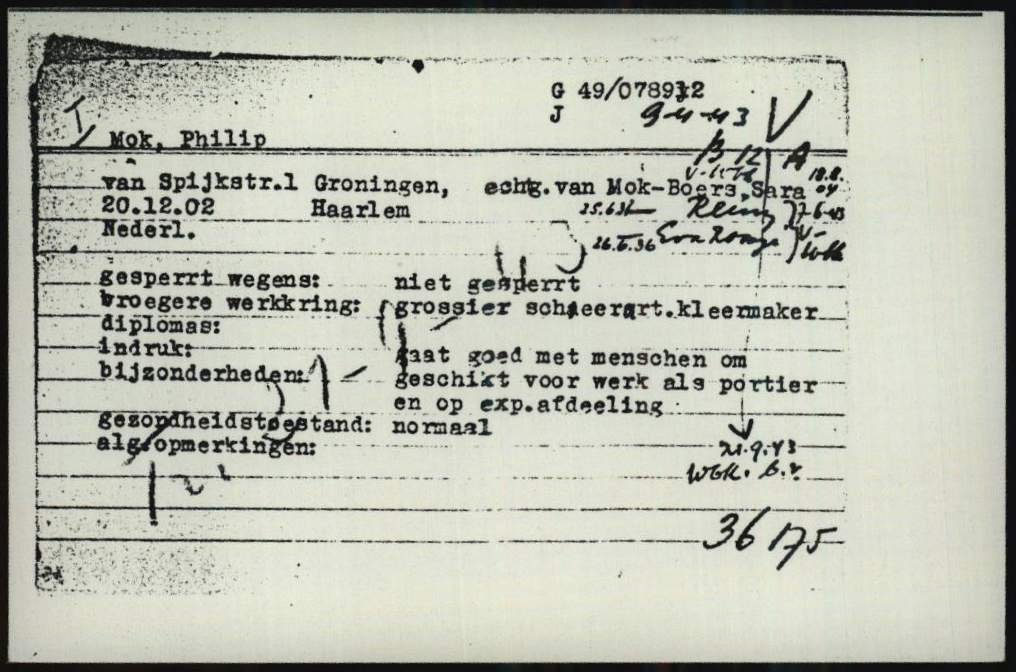 G 49/078912
J 9-4-43
I
Mok, Philip
B 12 A
van Spijkstr.1 Groningen, echtg.van Mok-Boers, Sara 18.8.04
20.12.02 Haarlem
Nederl.
26.5.36
gesperrt wegens: niet gesperrt
vroegere werkkring: grossier scheerart.kleermaker
diplomas:
indruk: gaat goed met menschen om
bijzonderheden: geschikt voor werk als portier
en op exp.afdeeling
gezondheidstoestand: normaal
alg.opmerkingen:
21.9.43
Wbk.
36 175